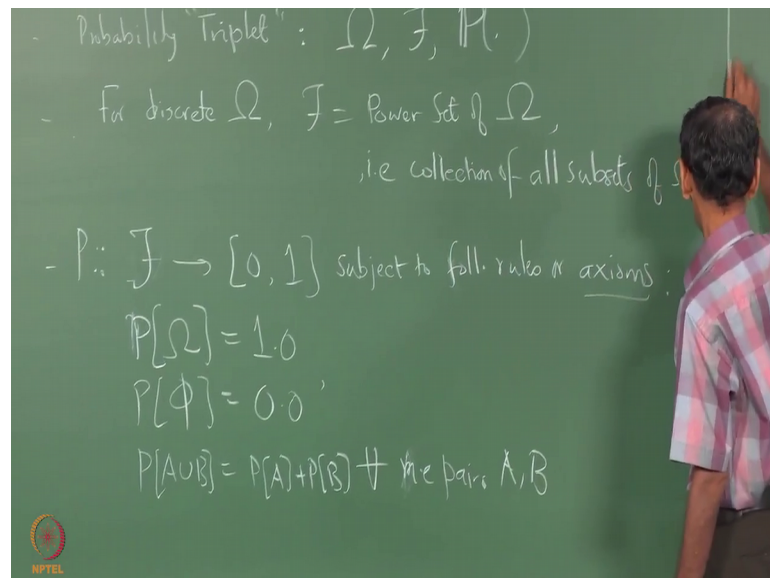 - Probability "Triplet" : Ω, F, P(. )
- For discrete Ω, F = Power Set of Ω,
, i.e collection of all subsets of
- P :: F → [0, 1] subject to foll. rules or axioms :
P[Ω] = 1.0
P[Φ] = 0.0 ,
P[A∪B] = P[A]+P[B] ∀ m.e pairs A, B
NPTEL